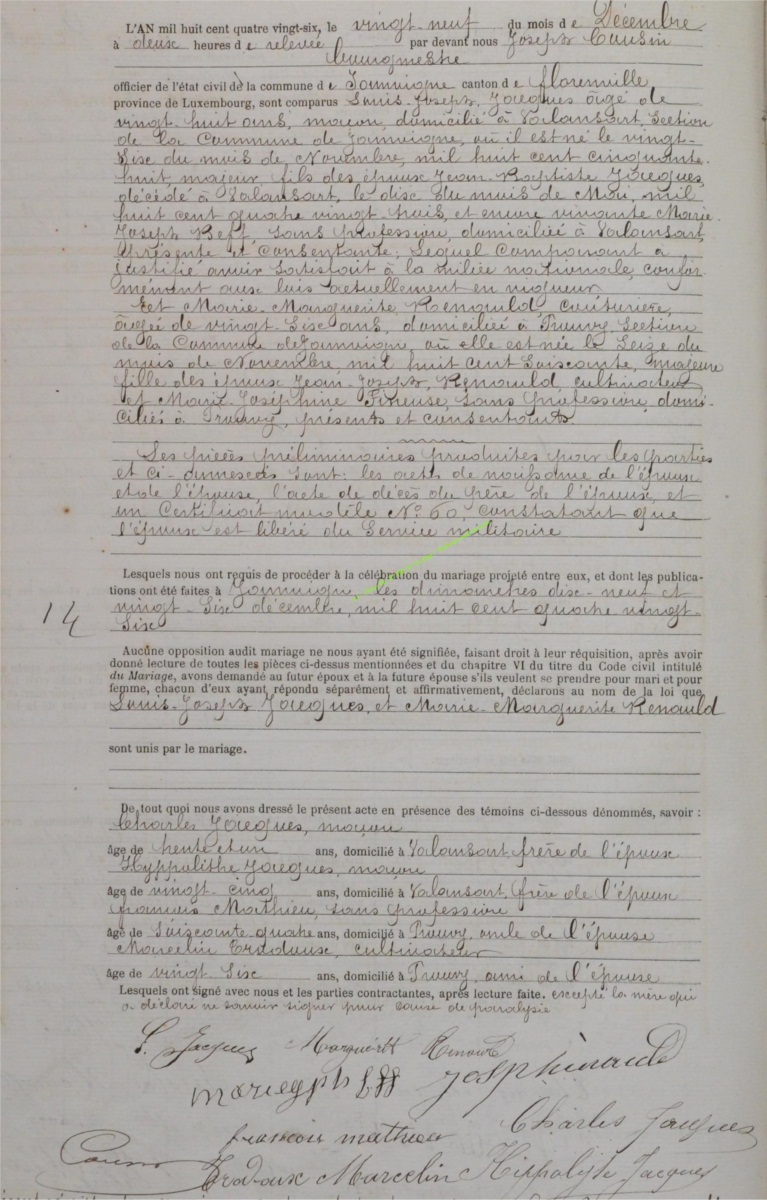 L'AN mil huit cent quatre vingt-six, le vingt neuf du mois de Décembre
à deux heures de relevée par devant nous Joseph Causin
bourgmestre
officier de l'état civil de la commune de Jamoigne canton de florenville
province de Luxembourg, sont comparus Louis-Joseph Jacques âgé de
vingt-huit ans, maçon, domicilié à Valansart, Section
de la Commune de Jamoigne, où il est né le vingt-
six du mois de Novembre, mil huit cent cinquante-
huit, majeur fils des époux Jean-Baptiste Jacques,
décédé à Valansart, le dix du mois de Mai, mil
huit cent quatre vingt-trois, et encore vivante Marie-
Joseph sans profession, domiciliée à Valansart,
présente et consentante, Lequel comparant a
justifié avoir satisfait à la milice nationale, confor-
mément aux lois actuellement en vigueur
Et Marie-Marguerite Renauld, couturière,
âgée de vingt-six ans, domiciliée à Prouvy, Section
de la Commune de Jamoigne, où elle est née le Seize du
mois de Novembre, mil huit cent soixante, majeure
fille des époux Jean-Joseph Renauld, cultivateur
et Marie-Joséphine sans profession, domi-
ciliés à Prouvy, présents et consentants.
Les pièces préliminaires produites par les parties
et ci-annexées sont: les actes de naissance de l'époux
et de l'épouse, l'acte de décès du père de l'époux, et
un Certificat modèle No 60 constatant que
l'époux est libéré du Service militaire
Lesquels nous ont requis de procéder à la célébration du mariage projeté entre eux, et dont les publica-
tions ont été faites à Jamoigne, les dimanches dix-neuf et
vingt-six décembre, mil huit cent quatre vingt-
14
six
Aucune opposition audit mariage ne nous ayant été signifiée, faisant droit à leur réquisition, après avoir
donné lecture de toutes les pièces ci-dessus mentionnées et du chapitre VI du titre du Code civil intitulé
du Mariage, avons demandé au futur époux et à la future épouse s'ils veulent se prendre pour mari et pour
femme, chacun d'eux ayant répondu séparément et affirmativement, déclarons au nom de la loi que
Louis-Joseph Jacques, et Marie-Marguerite Renauld
sont unis par le mariage.
De tout quoi nous avons dressé le présent acte en présence des témoins ci-dessous dénommés, savoir :
Charles Jacques, maçon
âge de trente et un ans, domicilié à Valansart frère de l'époux
Hyppolithe Jacques, maçon
âge de vingt-cinq ans, domicilié à Valansart, frère de l'époux
françois Mathieu, sans profession
âge de soixante-quatre ans, domicilié à Prouvy, oncle de l'épouse
Marcelin Tradoux, cultivateur
âge de vingt six ans, domicilié à Prouvy, ami de l'épouse
Lesquels ont signé avec nous et les parties contractantes, après lecture faite. excepté la mère qui
a déclaré ne savoir signer pour cause de paralysie
L. Jacques Marguerite Renauld
françois mathieu Charles Jacques
Causin Tradoux Marcelin Hippolyte Jacques